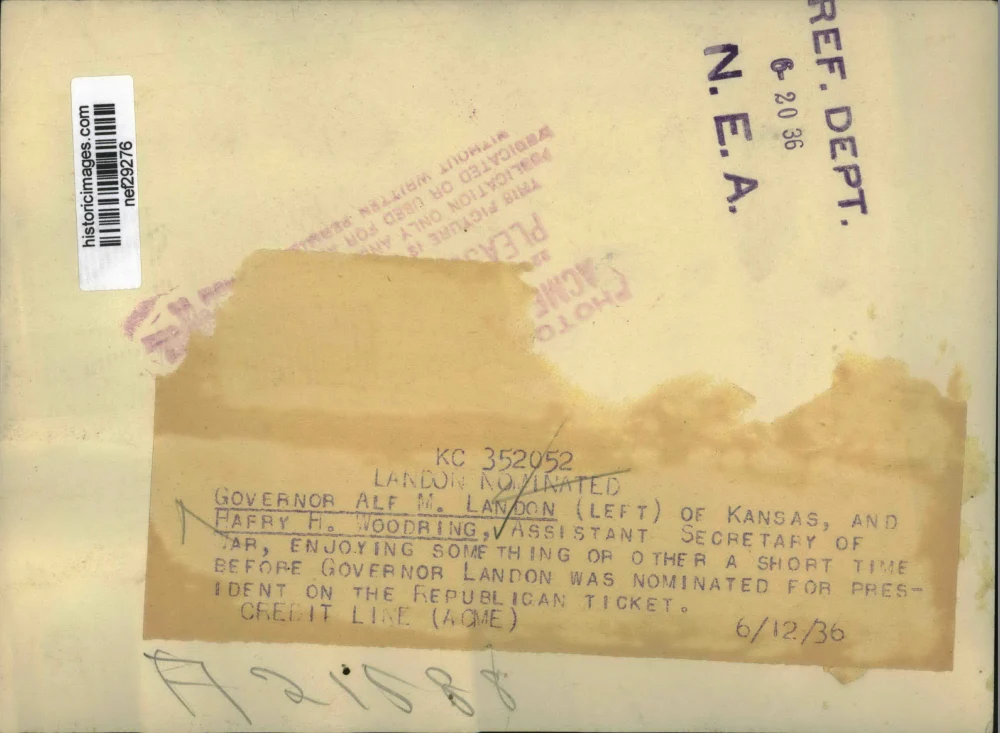 REF. DEPT.
6-20 36
N. E. A.
historicimages.com
nef29276
WITHOUT
DEDICATED OR USED FOR WRITTEN
PUBLICATION ONLY AND
THIS PICTURE IS
PLEAS
ACME
PHOTO
KC 352052
LANDON NOMINATED
GOVERNOR ALF M. LANDON (LEFT) OF KANSAS, AND
HARRY H. WOODRING, ASSISTANT SECRETARY OF
WAR, ENJOYING SOMETHING OR OTHER A SHORT TIME
BEFORE GOVERNOR LANDON WAS NOMINATED FOR PRES-
IDENT ON THE REPUBLICAN TICKET.
CREDIT LINE (ACME)
6/12/36
A21588